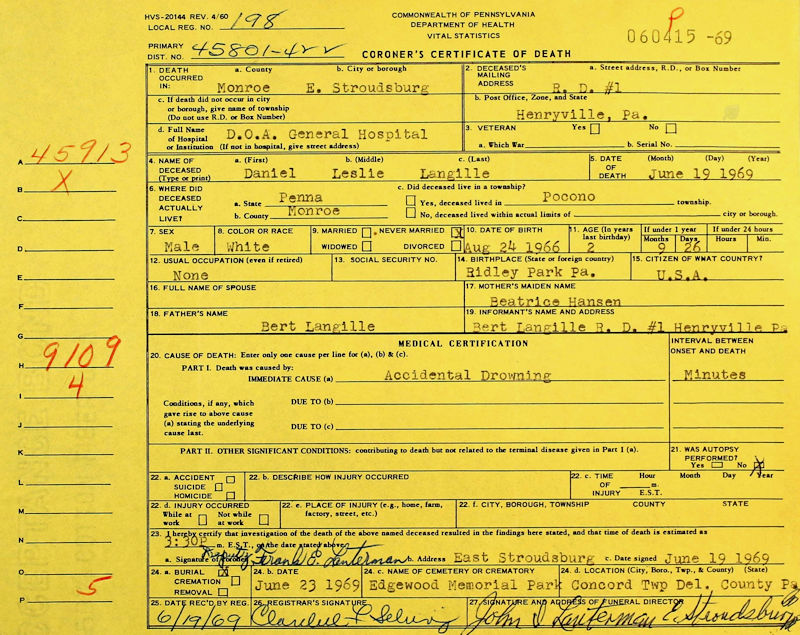 HVS-20144 REV. 4/60
LOCAL REG. NO. 198
COMMONWEALTH OF PENNSYLVANIA
DEPARTMENT OF HEALTH
VITAL STATISTICS
P
060415 -69
PRIMARY
DIST. NO. 45801-422
CORONER'S CERTIFICATE OF DEATH
1. DEATH OCCURRED IN: a. County b. City or borough
Monroe E. Stroudsburg
c. If death did not occur in city or borough, give name of township (Do not use R.D. or Box Number)
d. Full Name of Hospital or Institution (If not in hospital, give street address)
D.O.A. General Hospital
2. DECEASED'S MAILING ADDRESS a. Street address, R.D., or Box Number
R. D. #1
b. Post Office, Zone, and State
Henryville, Pa.
3. VETERAN Yes No
a. Which War b. Serial No.
A 45913
B X
C
D
E
F
G
H 9109
I 4
J
K
L
M
N
O 5
P
4. NAME OF DECEASED (Type or print) a. (First) b. (Middle) c. (Last)
Daniel Leslie Langille
5. DATE OF DEATH (Month) (Day) (Year)
June 19 1969
6. WHERE DID DECEASED ACTUALLY LIVE?
a. State Penna
b. County Monroe
c. Did deceased live in a township?
Yes, deceased lived in Pocono township.
No, deceased lived within actual limits of city or borough.
7. SEX
Male
8. COLOR OR RACE
White
9. MARRIED NEVER MARRIED X
WIDOWED DIVORCED
10. DATE OF BIRTH
Aug 24 1966
11. AGE (In years last birthday)
2
If under 1 year
Months Days
9 26
If under 24 hours
Hours Min.
12. USUAL OCCUPATION (even if retired)
None
13. SOCIAL SECURITY NO.
14. BIRTHPLACE (State or foreign country)
Ridley Park Pa.
15. CITIZEN OF WHAT COUNTRY?
U.S.A.
16. FULL NAME OF SPOUSE
17. MOTHER'S MAIDEN NAME
Beatrice Hansen
18. FATHER'S NAME
Bert Langille
19. INFORMANT'S NAME AND ADDRESS
Bert Langille R. D. #1 Henryville Pa
MEDICAL CERTIFICATION
INTERVAL BETWEEN ONSET AND DEATH
20. CAUSE OF DEATH: Enter only one cause per line for (a), (b) & (c).
PART I. Death was caused by:
IMMEDIATE CAUSE (a) Accidental Drowning
Minutes
Conditions, if any, which gave rise to above cause (a) stating the underlying cause last.
DUE TO (b)
DUE TO (c)
PART II. OTHER SIGNIFICANT CONDITIONS: contributing to death but not related to the terminal disease given in Part I (a).
21. WAS AUTOPSY PERFORMED?
Yes No X
22. a. ACCIDENT
SUICIDE
HOMICIDE
22. b. DESCRIBE HOW INJURY OCCURRED
22. c. TIME OF INJURY Hour Month Day Year
m.
E.S.T.
22. d. INJURY OCCURRED
While at work Not while at work
22. e. PLACE OF INJURY (e.g., home, farm, factory, street, etc.)
22. f. CITY, BOROUGH, TOWNSHIP COUNTY STATE
23. I hereby certify that investigation of the death of the above named deceased resulted in the findings here stated, and that time of death is estimated as
3:30P m. E.S.T., on the date stated above.
a. Signature of Coroner Deputy Frank E. Lanterman b. Address East Stroudsburg c. Date signed June 19 1969
24. a. BURIAL X
CREMATION
REMOVAL
24. b. DATE
June 23 1969
24. c. NAME OF CEMETERY OR CREMATORY
Edgewood Memorial Park
24. d. LOCATION (City, Boro., Twp., & County) (State)
Concord Twp Del. County Pa
25. DATE REC'D BY REG.
6/19/69
26. REGISTRAR'S SIGNATURE
27. SIGNATURE AND ADDRESS OF FUNERAL DIRECTOR
John Lanterman E. Stroudsburg Pa